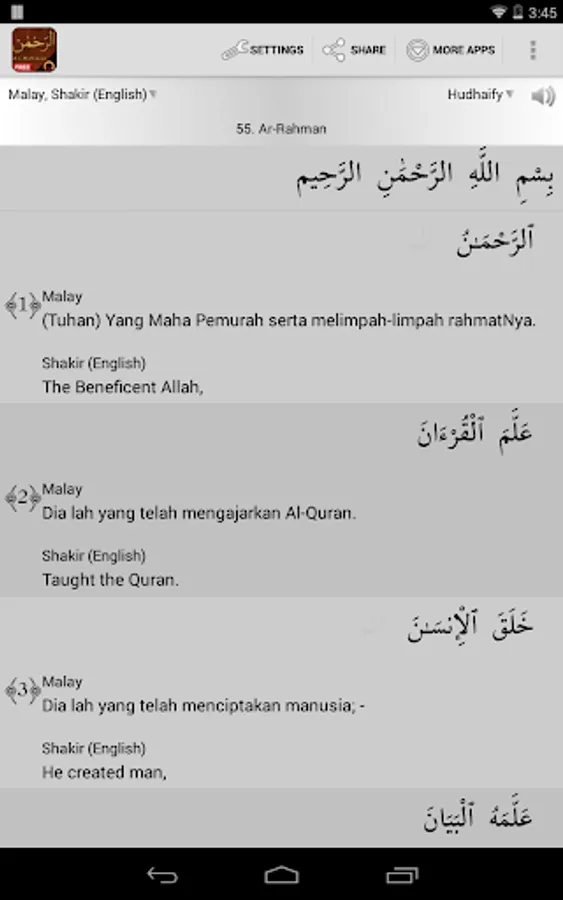 3:45
الرحمن
FREE
SETTINGS
SHARE
MORE APPS
Malay, Shakir (English)
Hudhaify
55. Ar-Rahman
بِسْمِ اللَّهِ الرَّحْمَٰنِ الرَّحِيم
ٱلرَّحْمَـٰنُ
1
Malay
(Tuhan) Yang Maha Pemurah serta melimpah-limpah rahmatNya.
Shakir (English)
The Beneficent Allah,
عَلَّمَ ٱلْقُرْءَانَ
2
Malay
Dia lah yang telah mengajarkan Al-Quran.
Shakir (English)
Taught the Quran.
خَلَقَ ٱلْإِنسَـٰنَ
3
Malay
Dia lah yang telah menciptakan manusia; -
Shakir (English)
He created man,
عَلَّمَهُ ٱلْبَيَانَ